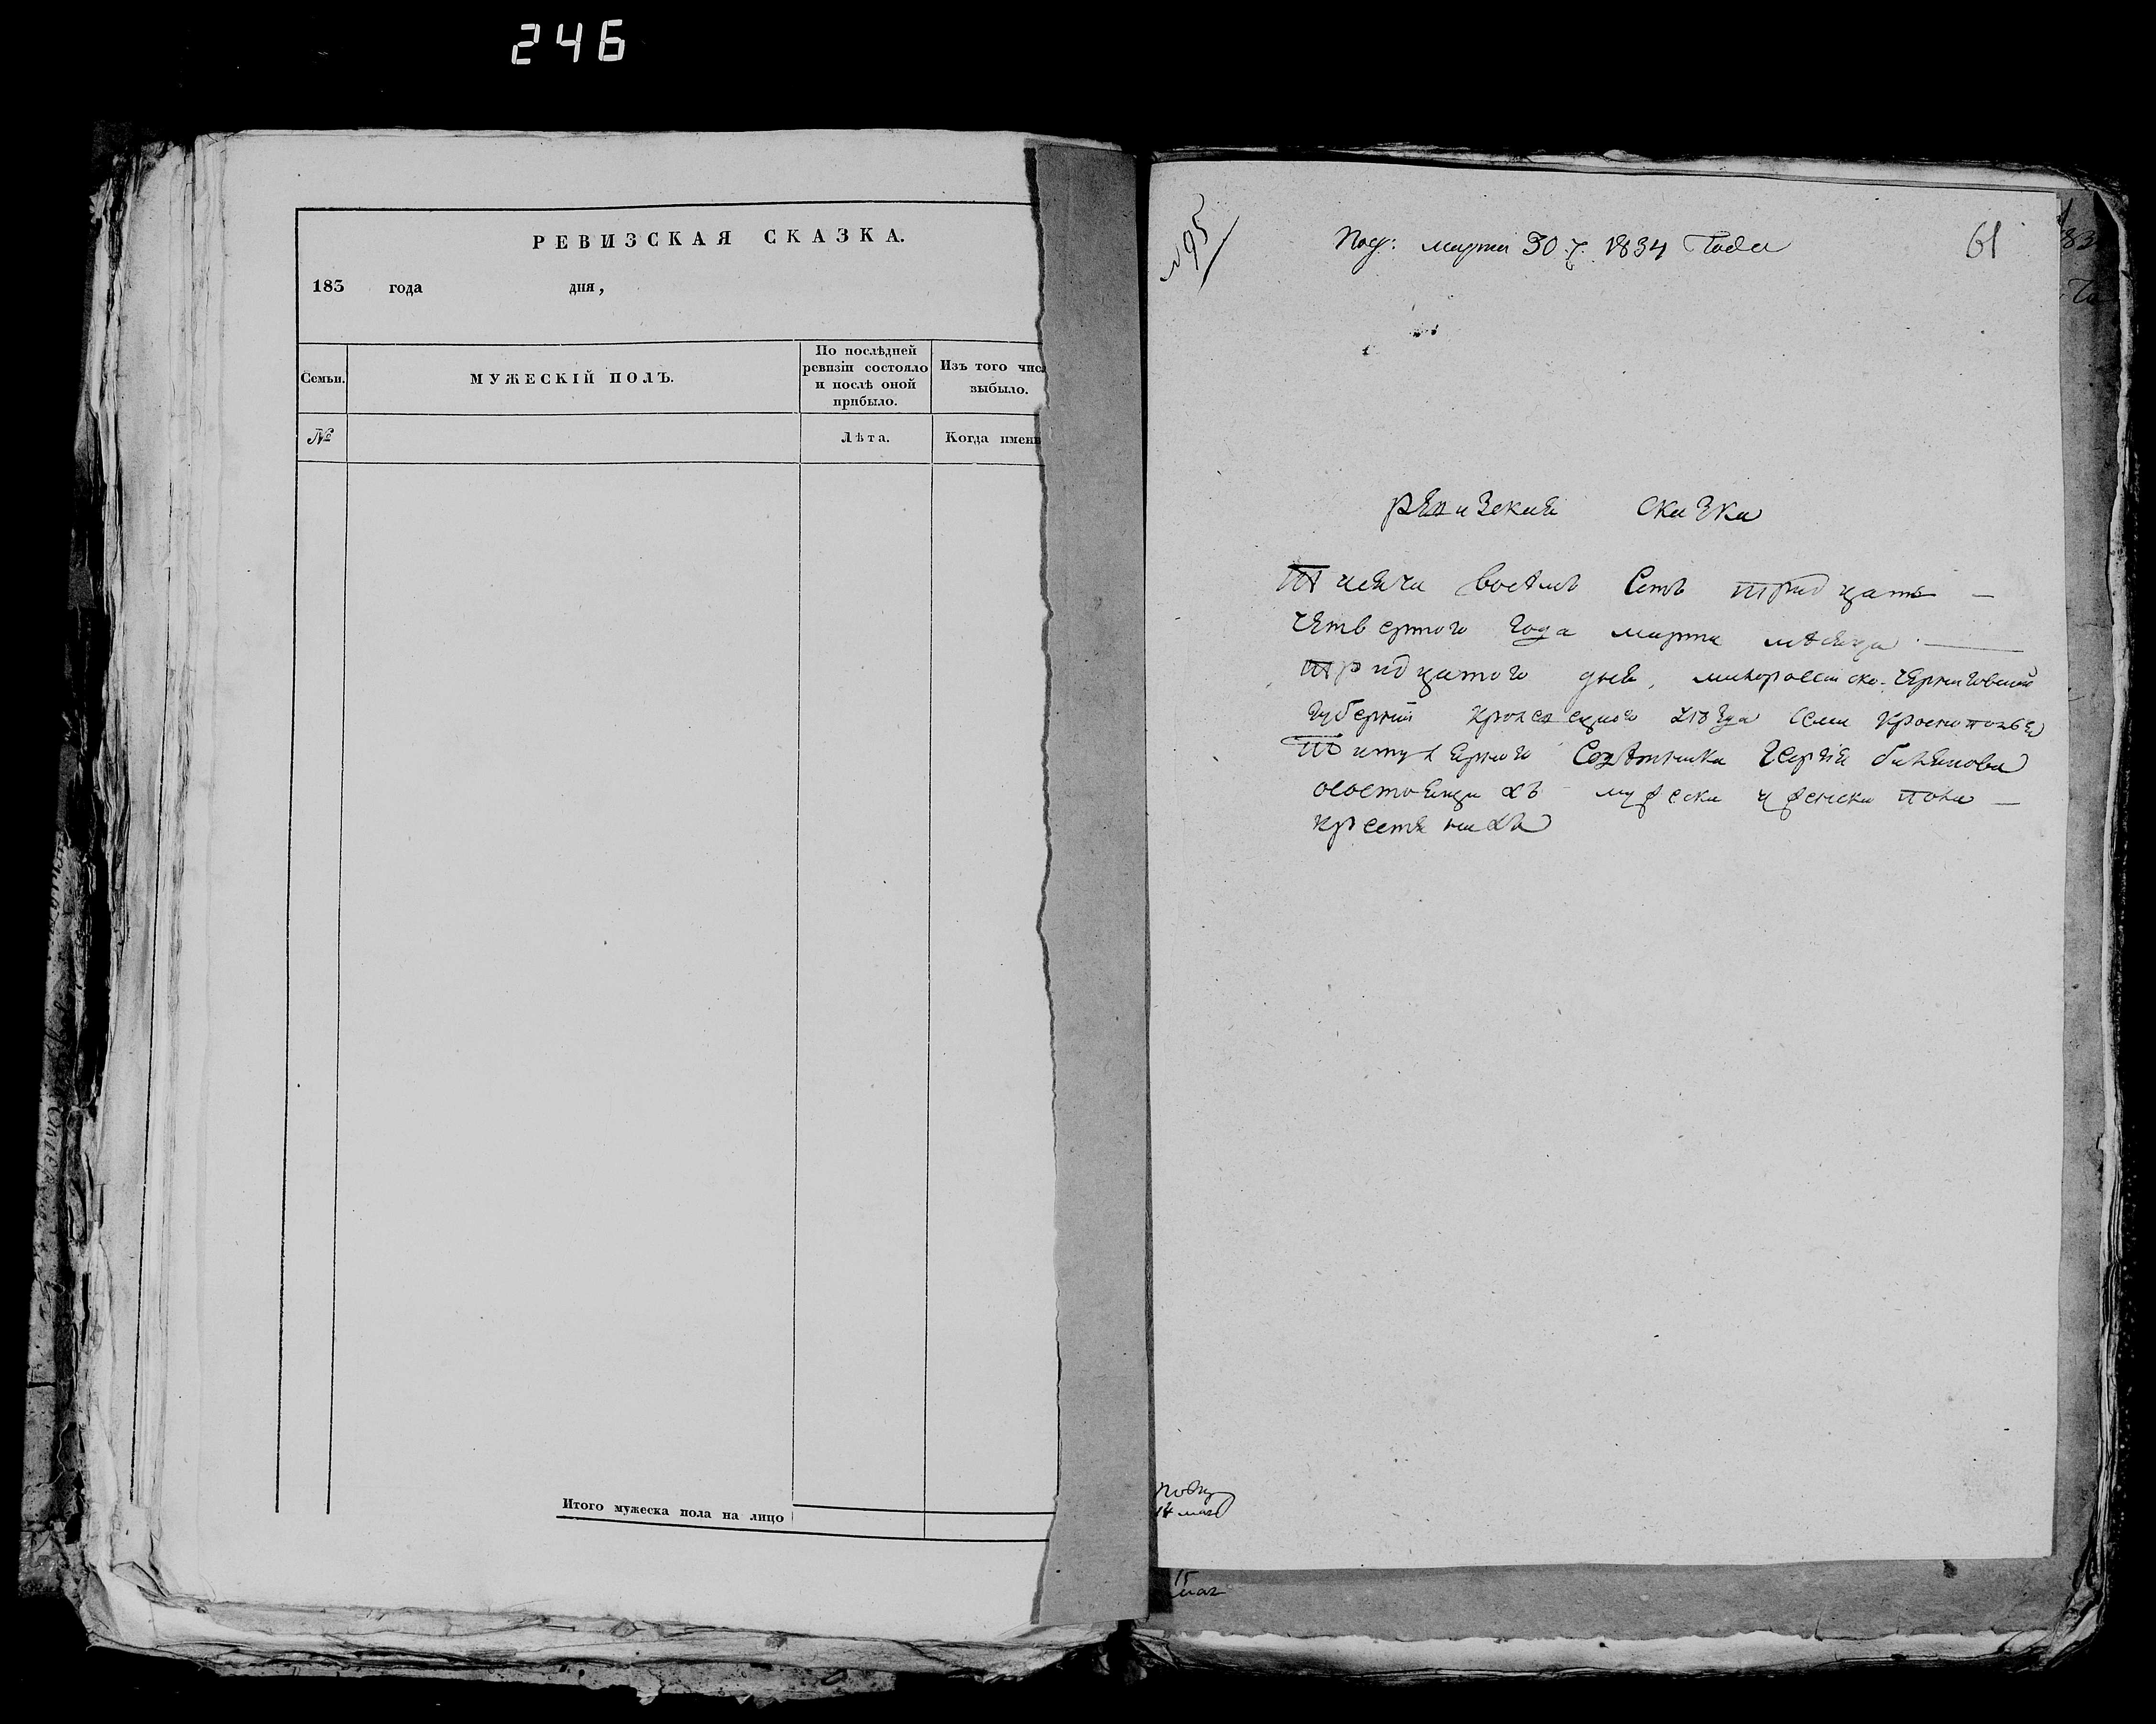 246
РЕВИЗСКАЯ СКАЗКА.
183 года дня,
Семьи.
МУЖЕСКІЙ ПОЛЪ.
По послѣдней
ревизіи состояло
и послѣ оной
прибыло.
Изъ того чис
выбыло.
№
Лѣта.
Когда имен
Итого мужеска пола на лицо
№ 95
Под: марта 30 ч. 1834 Года
61
ревизская сказка
тисяча восемь Сотъ тридцать —
четвертого года марта месяца —
тридцатого дня, малоросійско-черниговской
губерніи кролевецкого уезда села
титулярного Советника
состоящихъ мужеска и женска пола —
крестянахъ